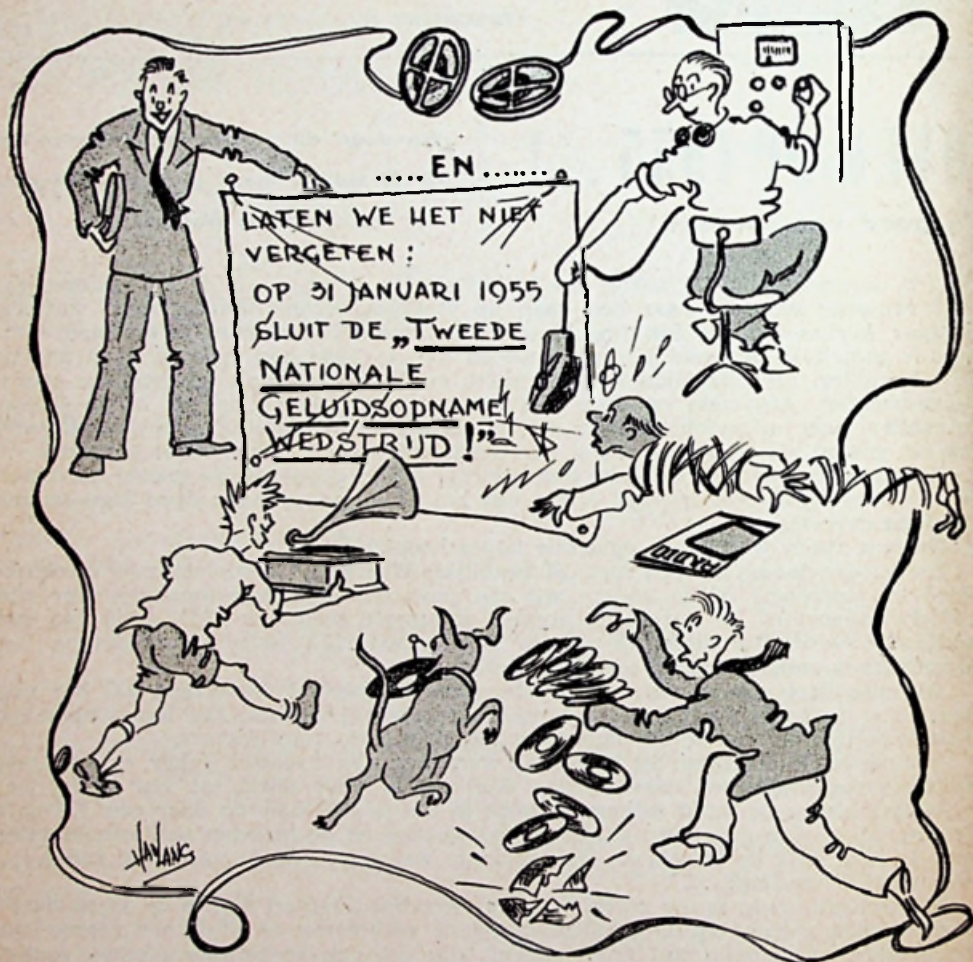 ..... EN .......
LATEN WE HET NIET
VERGETEN :
OP 31 JANUARI 1955
SLUIT DE „TWEEDE
NATIONALE
GELUIDSOPNAME
WEDSTRIJD !”
RADIO